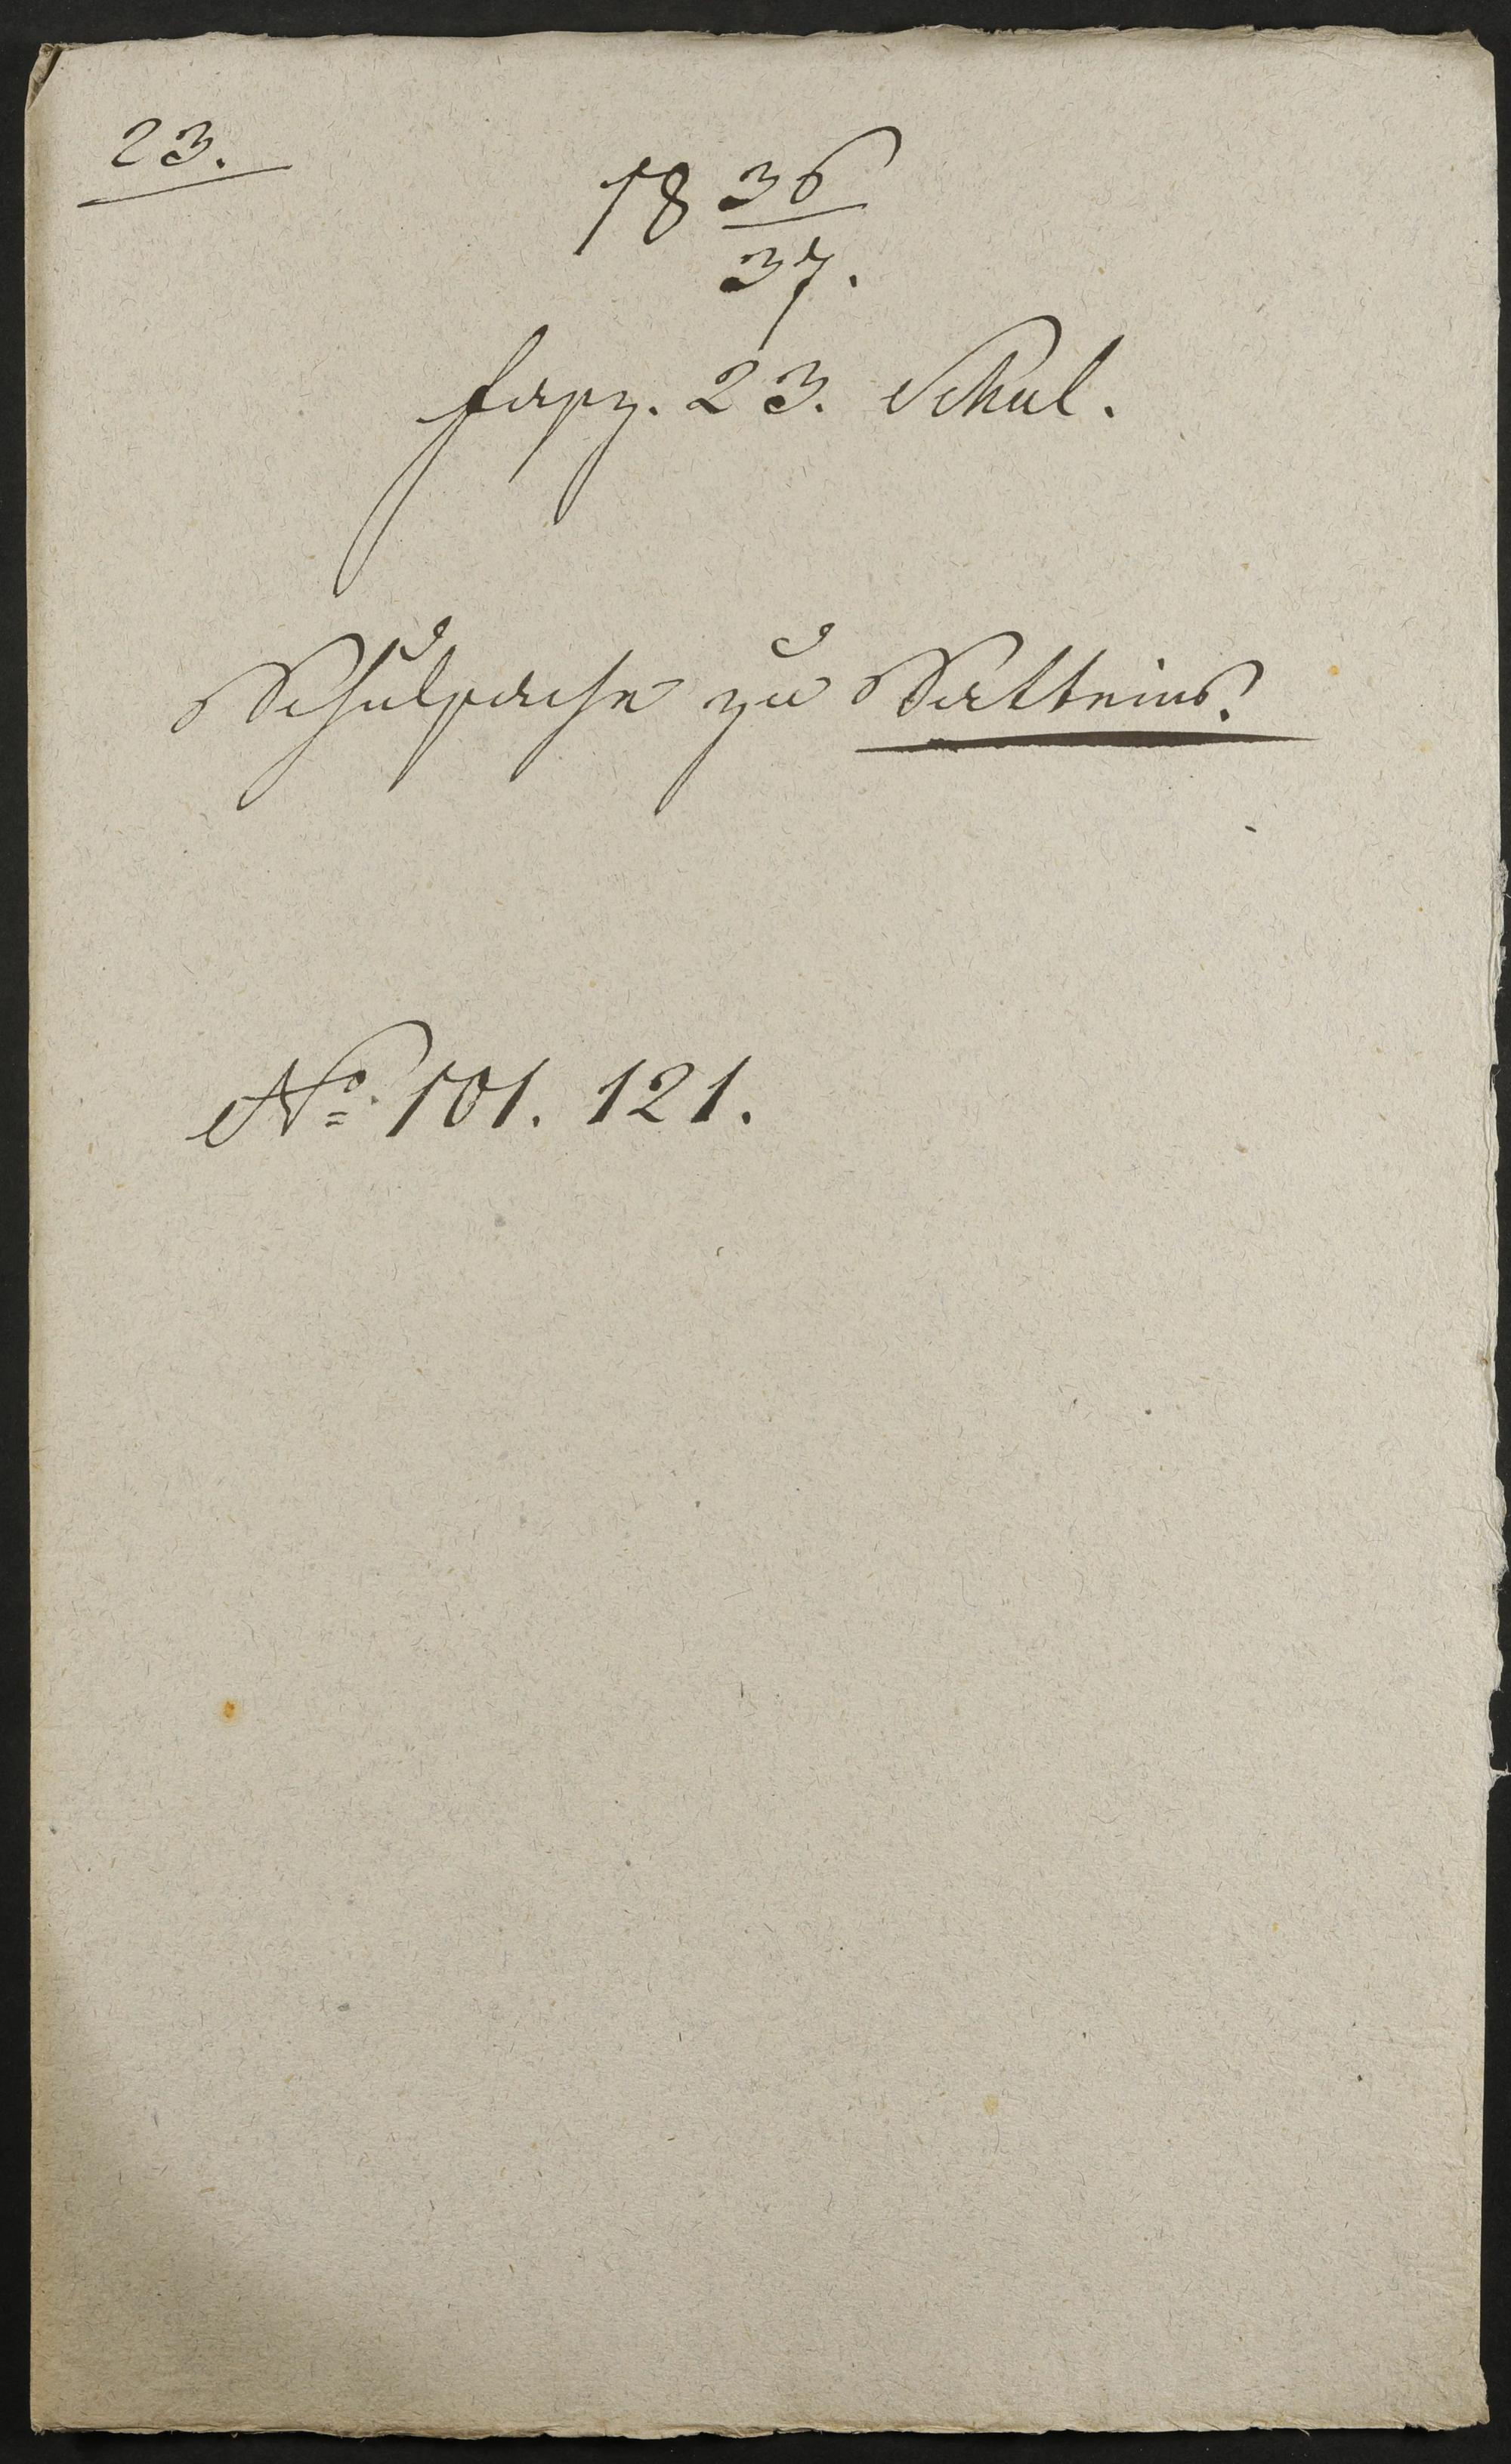 23.
18 36
37.
fasz. 23. Schul.
Schulsache zu Satteins.
No. 101. 121.